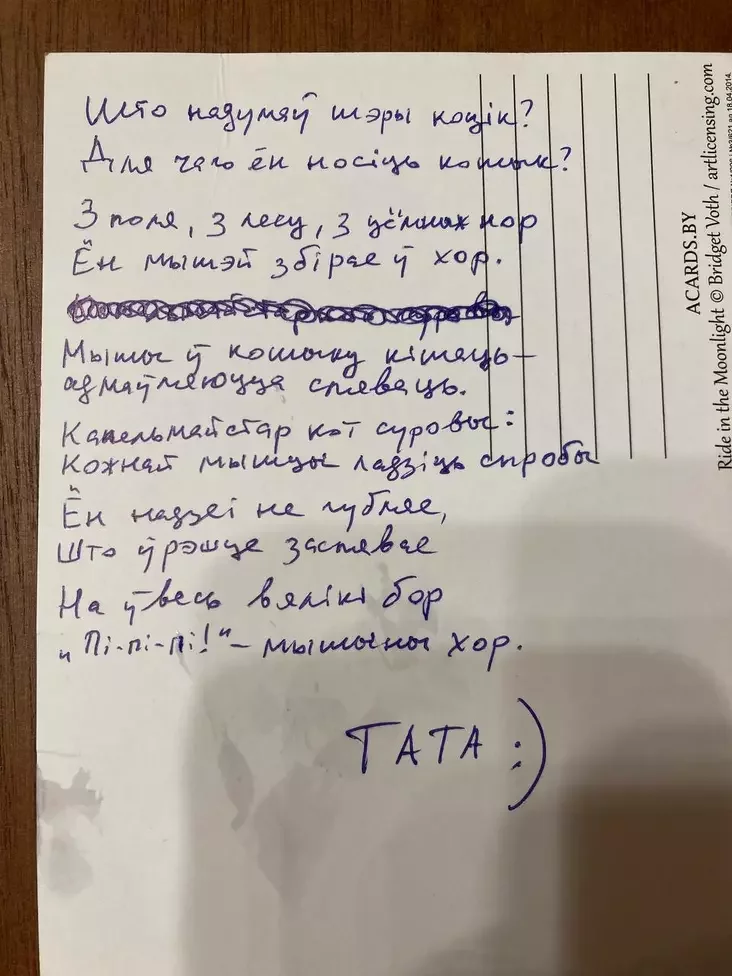 Што надумаў шэры коцік?
Для чаго ён носіць кошык?
З поля, з лесу, з цёмных нор
Ён мышэй збірае ў хор.
Мышы ў кошыку кішаць –
адмаўляюцца спяваць.
Капельмайстар кот суровы:
Кожнай мышцы ладзіць спробы
Ён надзеі не губляе,
Што ўрэшце заспявае
На ўвесь вялікі бор
„Пі-пі-пі!“ – мышыны хор.
ТАТА :)
ACARDS.BY
Ride in the Moonlight © Bridget Voth / artlicensing.com